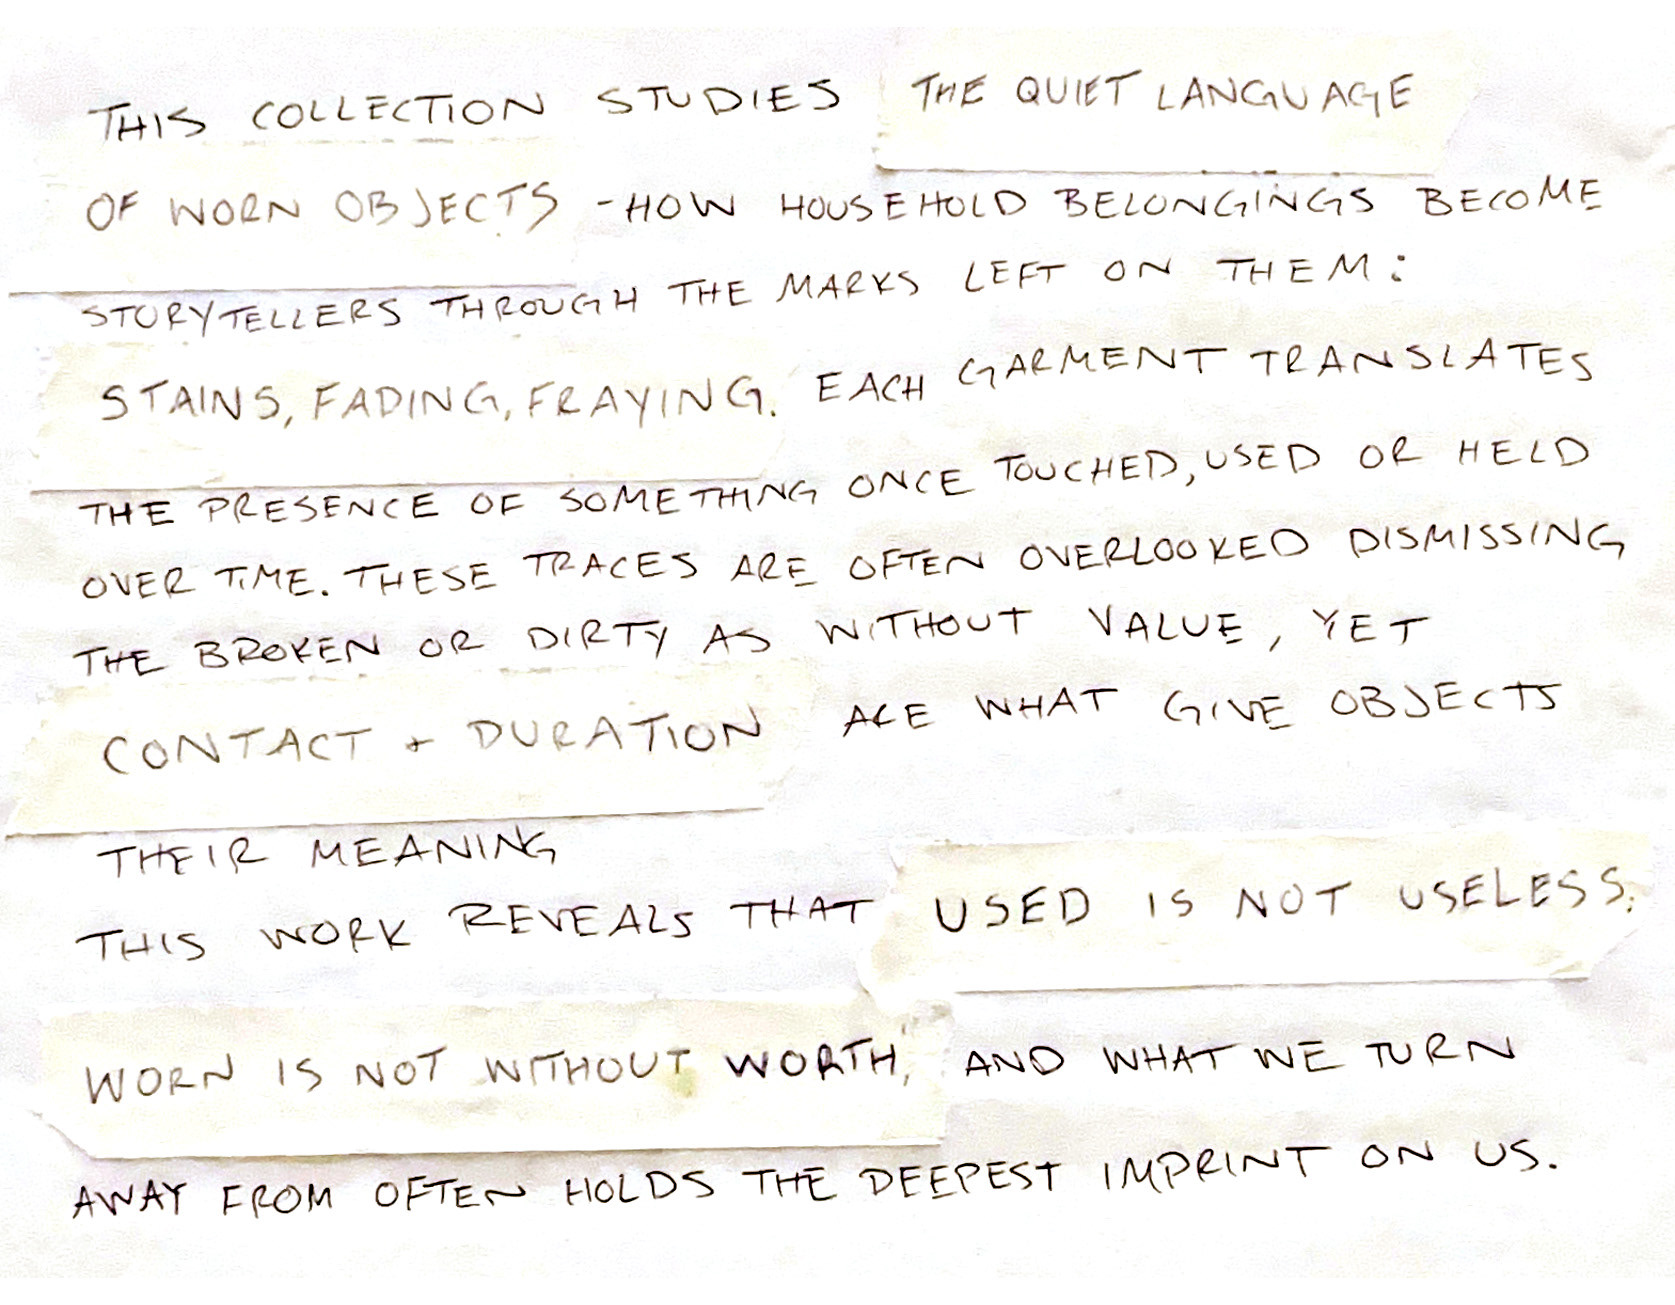 THIS COLLECTION STUDIES THE QUIET LANGUAGE
OF WORN OBJECTS - HOW HOUSEHOLD BELONGINGS BECOME
STORYTELLERS THROUGH THE MARKS LEFT ON THEM:
STAINS, FADING, FRAYING. EACH GARMENT TRANSLATES
THE PRESENCE OF SOMETHING ONCE TOUCHED, USED OR HELD
OVER TIME. THESE TRACES ARE OFTEN OVERLOOKED DISMISSING
THE BROKEN OR DIRTY AS WITHOUT VALUE, YET
CONTACT + DURATION ARE WHAT GIVE OBJECTS
THEIR MEANING
THIS WORK REVEALS THAT USED IS NOT USELESS;
WORN IS NOT WITHOUT WORTH, AND WHAT WE TURN
AWAY FROM OFTEN HOLDS THE DEEPEST IMPRINT ON US.